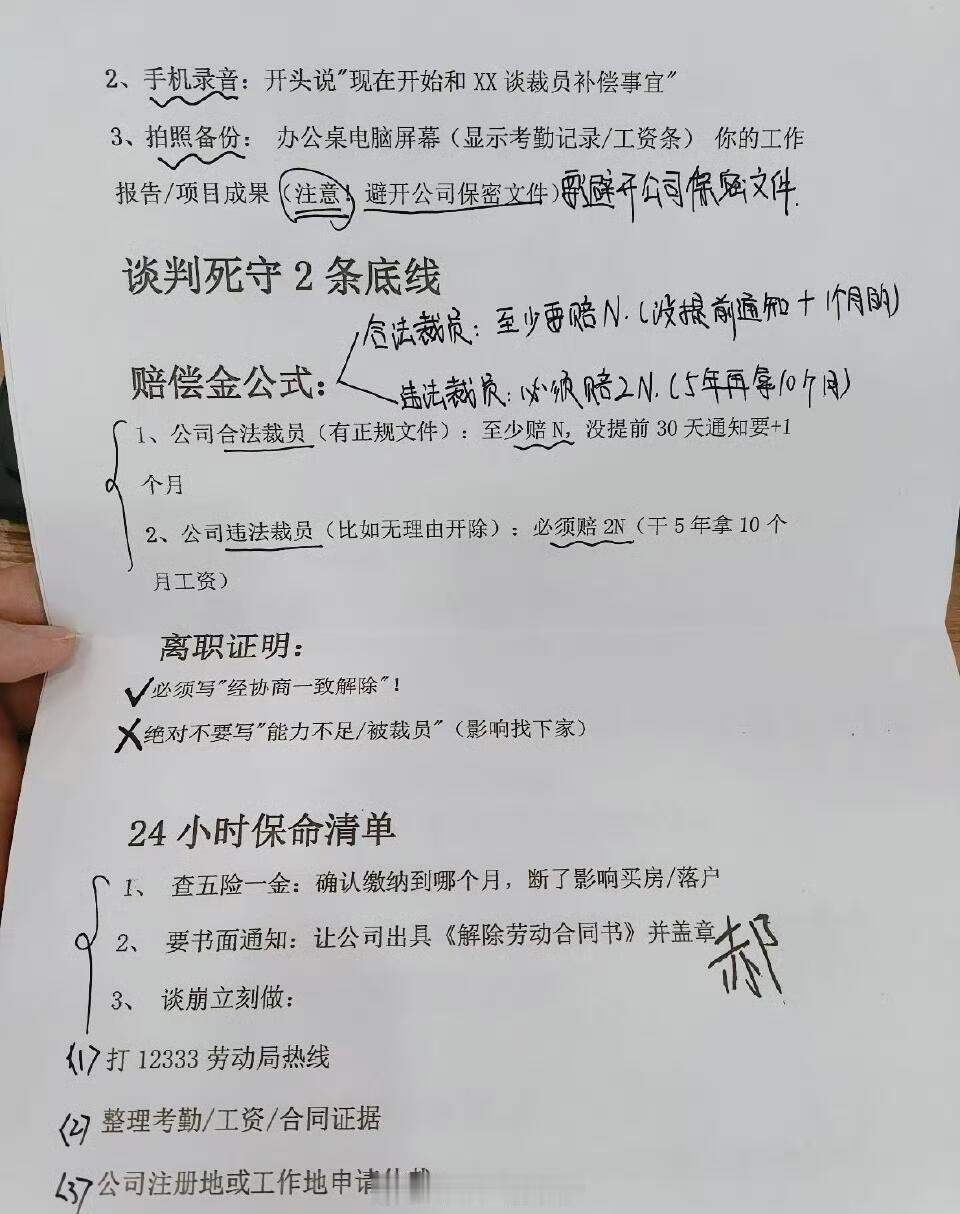 2、手机录音：开头说"现在开始和 XX 谈裁员补偿事宜"
3、拍照备份： 办公桌电脑屏幕（显示考勤记录/工资条） 你的工作
报告/项目成果（注意！避开公司保密文件）要避开公司保密文件.
谈判死守 2 条底线
合法裁员：至少要赔N.（没提前通知+1个月的）
赔偿金公式：
违法裁员：必须赔2N.（5年再拿10个月）
1、公司合法裁员（有正规文件）：至少赔 N，没提前 30 天通知要+1
个月
2、公司违法裁员（比如无理由开除）：必须赔 2N（干 5 年拿 10 个
月工资）
离职证明：
✓必须写"经协商一致解除"！
X绝对不要写"能力不足/被裁员"（影响找下家）
24 小时保命清单
1、 查五险一金：确认缴纳到哪个月，断了影响买房/落户
2、 要书面通知：让公司出具《解除劳动合同书》并盖章
郝
3、 谈崩立刻做：
(1)打 12333 劳动局热线
(2)整理考勤/工资/合同证据
(3)公司注册地或工作地申请